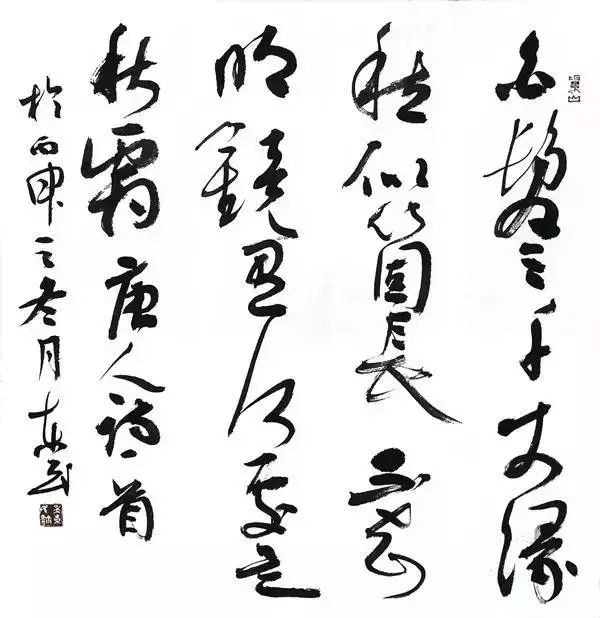 白髮三千丈緣
愁似箇長不知
明鏡里何處得
秋霜唐人詩一首
於丙申之冬月